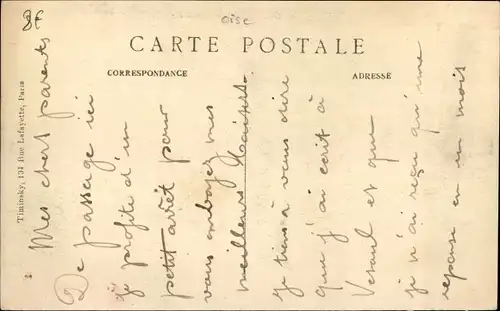 8F
oise
CARTE POSTALE
CORRESPONDANCE
ADRESSE
Timinsky, 131 Rue Lafayette, Paris
Mes chers parents
De passage ici
je profite d'un
petit arrêt pour
vous envoyez mes
meilleurs
je tiens à vous dire
que j'ai ecrit à
et que
je n'ai reçu qu'une
reponse en un mois